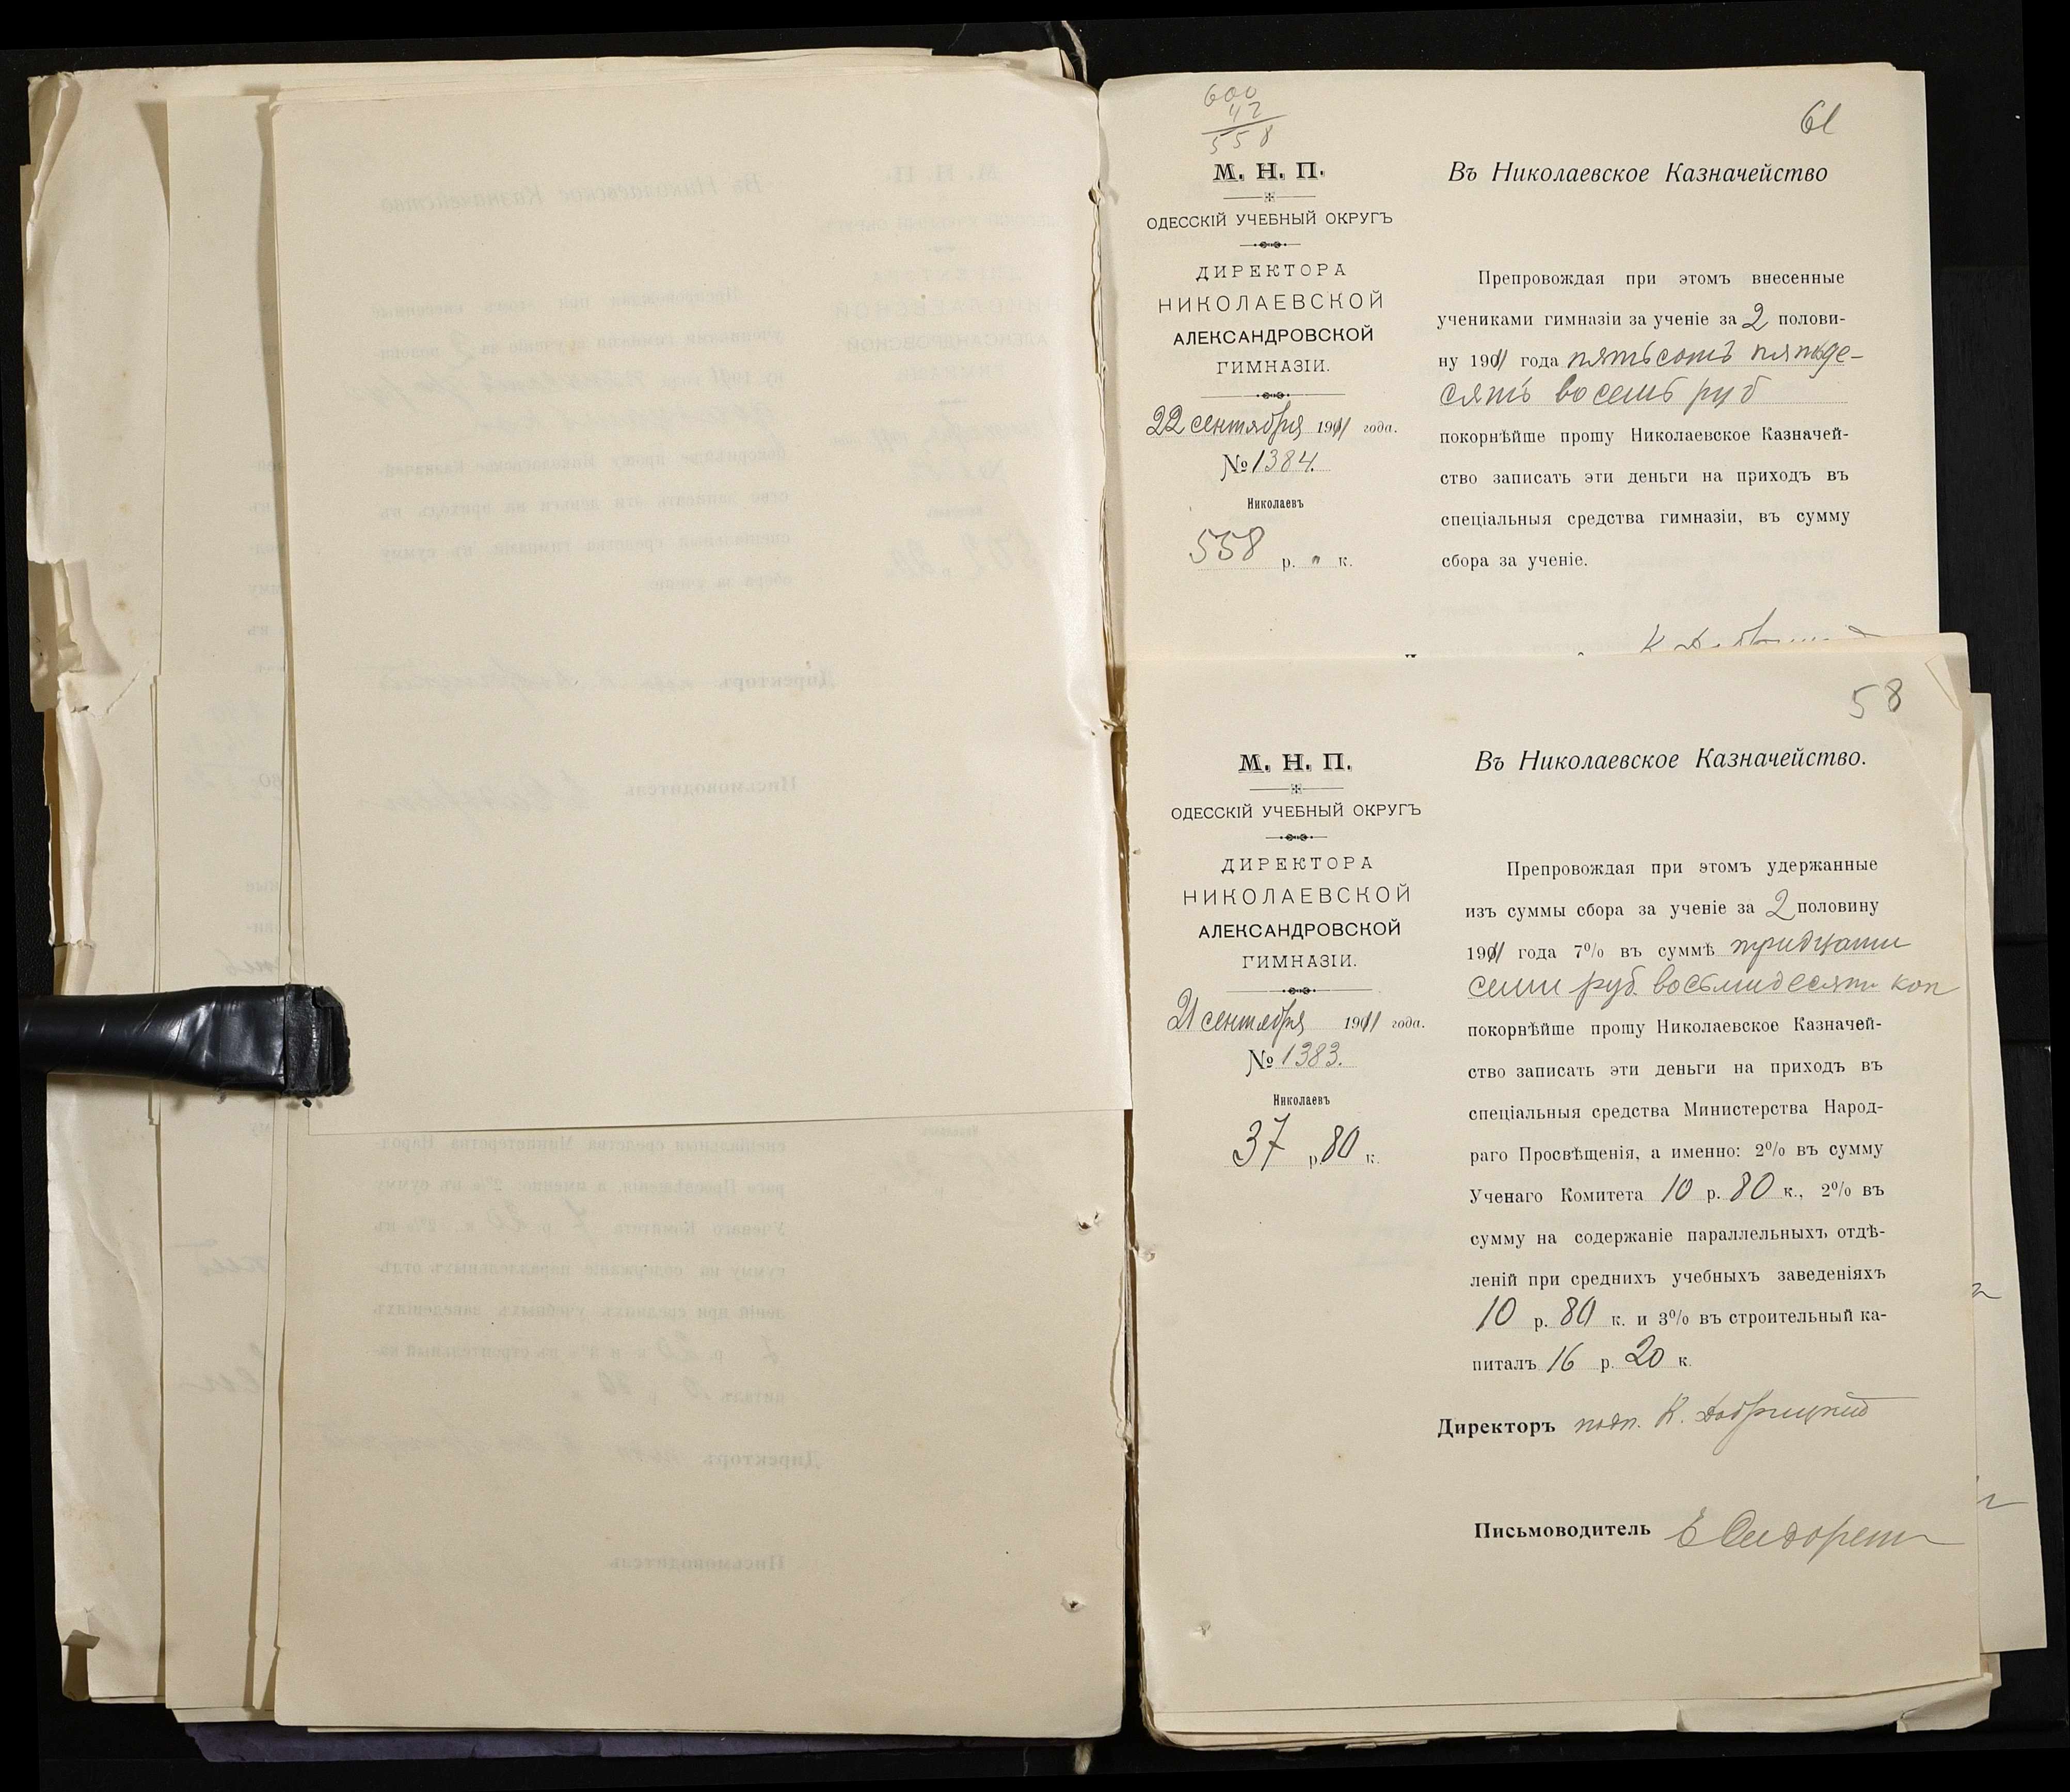 600
42
558
61
М. Н. П.
ОДЕССКІЙ УЧЕБНЫЙ ОКРУГЪ
ДИРЕКТОРА
НИКОЛАЕВСКОЙ
АЛЕКСАНДРОВСКОЙ
ГИМНАЗІИ.
22 сентября 1911 года.
№ 1384.
Николаевъ
558 р. " к.
Въ Николаевское Казначейство
Препровождая при этомъ внесенные
учениками гимназіи за ученіе за 2 полови-
ну 1911 года пятьсотъ пятьде-
сятъ восемь руб
покорнѣйше прошу Николаевское Казначей-
ство записать эти деньги на приходъ въ
спеціальныя средства гимназіи, въ сумму
сбора за ученіе.
58
М. Н. П.
ОДЕССКІЙ УЧЕБНЫЙ ОКРУГЪ
ДИРЕКТОРА
НИКОЛАЕВСКОЙ
АЛЕКСАНДРОВСКОЙ
ГИМНАЗІИ.
21 сентября 1911 года.
№ 1383.
Николаевъ
37 р. 80 к.
Въ Николаевское Казначейство.
Препровождая при этомъ удержанные
изъ суммы сбора за ученіе за 2 половину
1911 года 7% въ суммѣ тридцати
семи руб. восьмидесяти коп
покорнѣйше прошу Николаевское Казначей-
ство записать эти деньги на приходъ въ
спеціальныя средства Министерства Народ-
раго Просвѣщенія, а именно: 2% въ сумму
Ученаго Комитета 10 р. 80 к., 2% въ
сумму на содержаніе параллельныхъ отдѣ-
леній при среднихъ учебныхъ заведеніяхъ
10 р. 80 к. и 3% въ строительный ка-
питалъ 16 р. 20 к.
Директоръ подп. К.
Письмоводитель Е